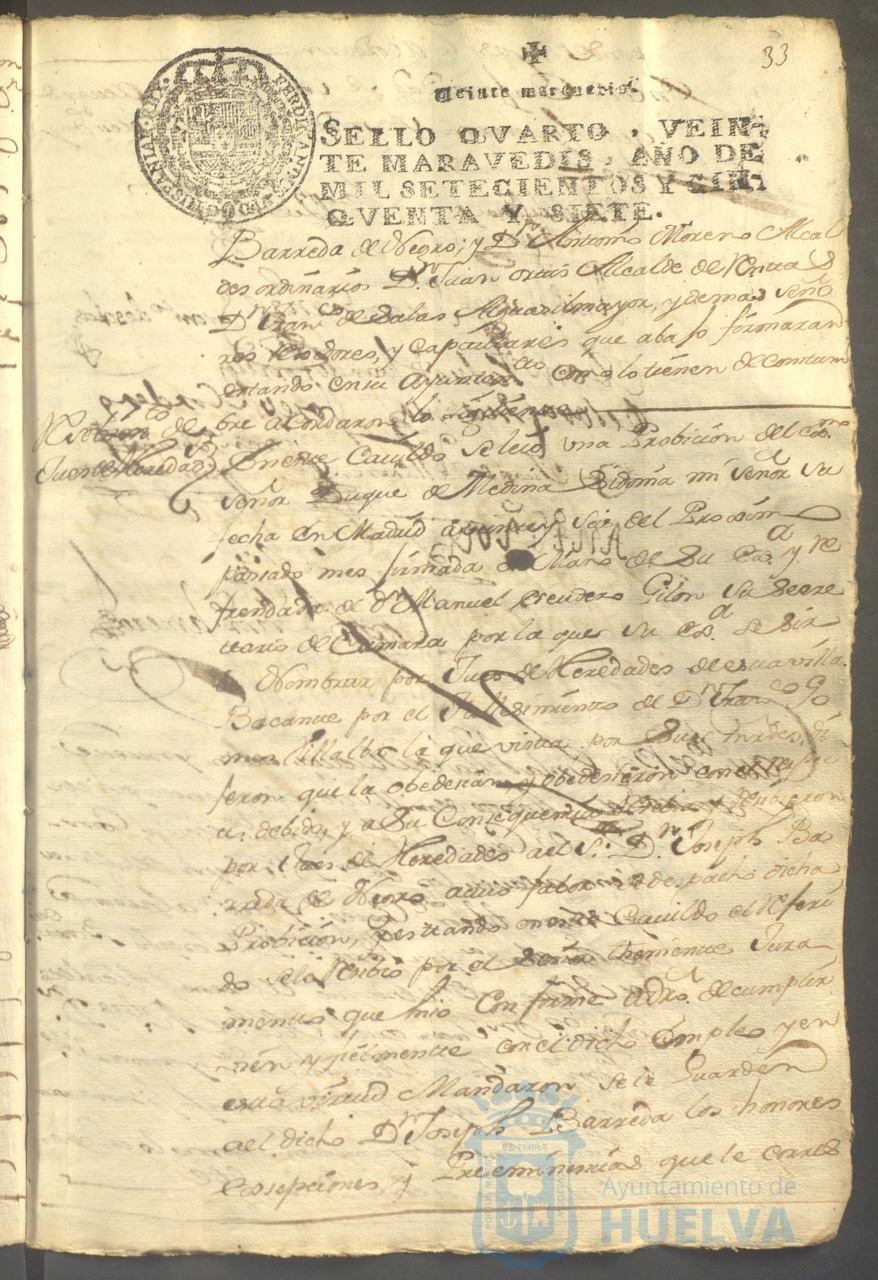 33
Veinte maravedis.
SELLO QVARTO, VEIN-
TE MARAVEDIS, AÑO DE
MIL SETECIENTOS Y CIN-
QVENTA Y SIETE.
Barreda de Negro; y Dn Antonio Moreno Alcal
des ordinarios Dn Juan ortiz Alcalde de
Dn Franco de Salas Alguasil mayor, y demas Seño
res, y Capitulares que abajo firmaran
estando en su Ayuntamto como lo tienen de costum
bre acordaron lo siguiente
Recibimto de
Jues de Heredades
En este Cavildo se leió una Probicion del exmo
Señor Duque de Medina Sidonia mi señor su
fecha en Madrid a del Procsimo
pasado mes firmada de Mano de Su Exa y re
frendada de Dn Manuel escudero Gilon su Secre
tario de Camara por la que su Exa se sir
Nombrar por Jues de Heredades de esta villa
Bacante por el fallesimiento de Dn Franco Go
mes Villalba la que vista por Sus mrdes di
jeron que la obedesian y obedesieron con el respec
to debido, y a Su Consequencia
por Jues de Heredades al Sr Dn Joseph Ba
rreda de Negro a cuio fabor se despacho dicha
Probicion, y estando en este Cavildo el referi
do se le Resibió por el Señor theniente Jura
mento que hizo Conforme a dro de cumplir
vien y fielmente con el dicho Empleo y en
esta virtud Mandaron se le Guarden
al dicho Dn Joseph Barreda los honores
essepciones, y Preeminensias que le corres
Ayuntamiento de
HUELVA